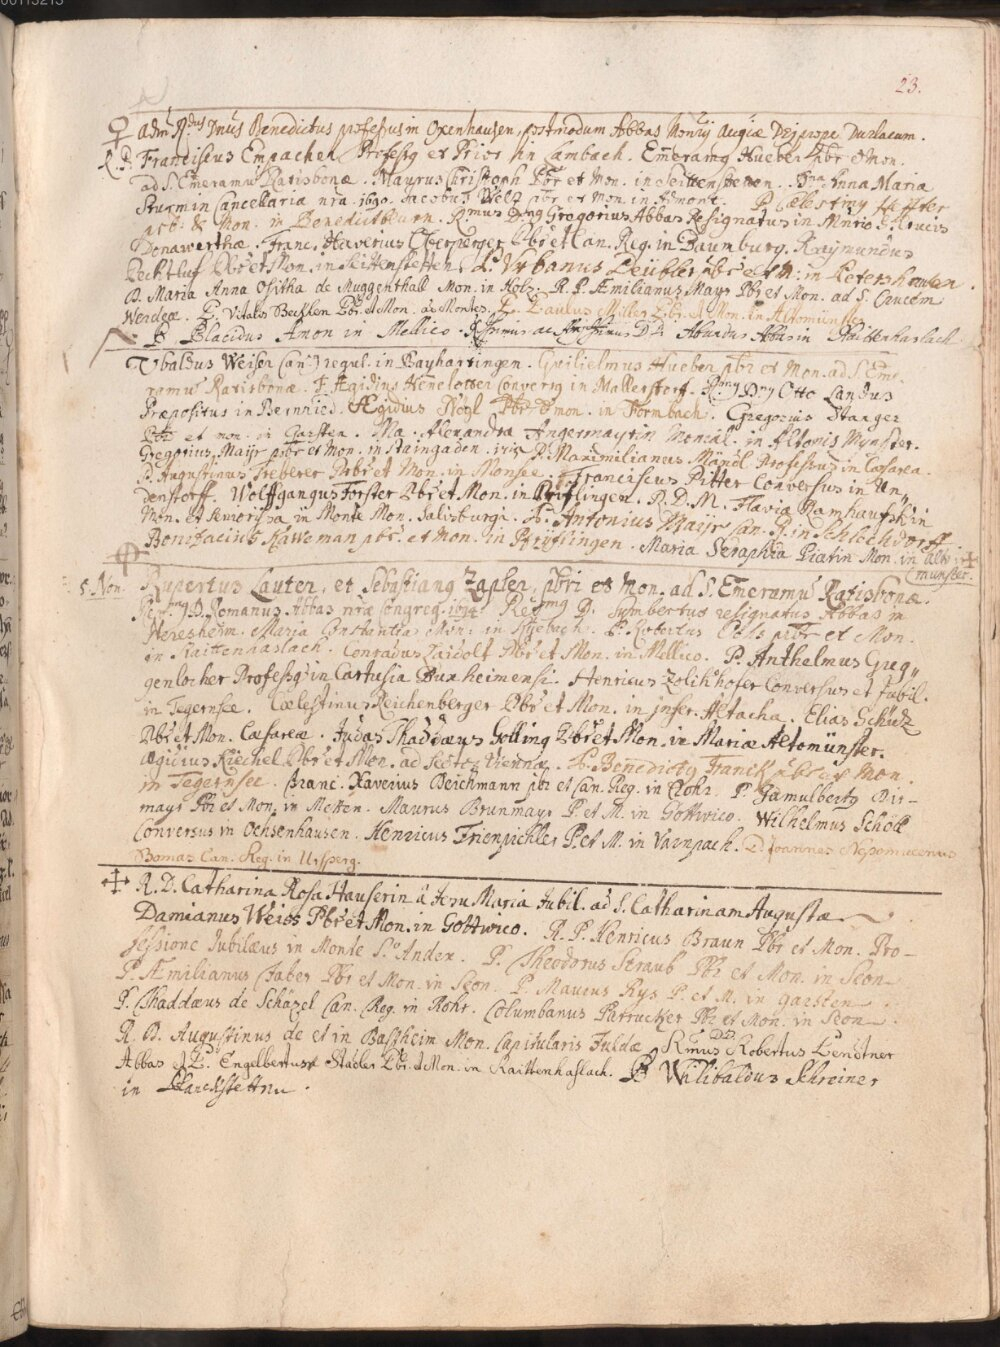 00113213
23.
Adm. R.dus Dnus Benedictus professus in Oxenhausen, postmodum Abbas Montis Augiæ prope
R. P. Franciscus Empacher Professg et Prior in Lambach. Emeramg Hueber Pbr & Mon.
ad S. Emeramũ Ratisbonæ. Maurus Christoph Pbr et Mon. in Seittenstetten. Anna Maria
Sturmin Cancellaria nra. 1690. Jacobus Welz pbr et Mon. in Admont. P. Cælestinus
Pcb. & Mon. in Benedictburn. R.mus Dng Gregorius Abbas Resignatus in Mnrio S. Crucis
Donawerthæ. Franc. Xaverius Oberperger Pbr et Can. Reg. in Baumburg. Raymundus
Pbr et Mon. in Seittenstetten. P. Urbanus pbr et M: in Petershausen.
D. Maria Anna Ositha de Muggenthall Mon. in Holz. R. P. Æmilianus Mayr Pbr et Mon. ad S. Crucem
Werdeæ. P. Vitalis Pbr. et Mon. P. Paulus Miller Pbr. et Mon. in Altomünster
P. Placidus Amon in Mellico. Rssimus ac Amplssimus D. D. Abundus Abbas in Raittenhaslach.
Ubaldus Weiser Can. regul. in Bayhartingen. Guilielmus Hueber pbr et Mon. ad S. Eme-
ramũ Ratisbonæ. F. Ægidius Convers9 in Mallerstorf. R.my D.ny Otto Landus
Præpositus in Bernried. Ægidius Nögl Pbr & mon. in Formbach. Gregorius Stanger
Pbr et mon. in Garsten. Ma. Alexandra Angermayrin Monial. in Altomynster.
Gregorius Mayr pbr et Mon. in Staingaden. P. Maximilianus Mändl Professus in Cæsarea.
P. Augustinus Preberer Pbr et Mon. in Monsee. Franciscus Pitter Conversus in Un„
denstorff. Wolffgangus Forster Pbr et Mon. in Prifflingen. R. D. M. Flavia
Mon. et Seniorissa in Monte Mon. Salisburgi. P. Antonius Mayr Can. R. in Schlechdorff
Bonifacius Kaweman pbr. et Mon. in Pryflingen. Maria Seraphia Piatin Mon. in Alto-
münster.
5. Non. Rupertus Lauter, et Sebastiang Zapler, pbri et Mon. ad S. Emeramũ Ratisbonæ.
D. Romanus Abbas nræ congreg. 1694. R. D. Simbertus resignatus Abbas in
Neresheim. Maria Constantia Mon: in P. Robertus pbr et Mon.
in Raittenhaslach. Conradus Zaidolt Pbr et Mon. in Mellico. P. Anthelmus Gug„
genlocher Professg in Cartusia Buxheimensi. Henricus Zolikhofer Conversus et Jubil.
in Tegernsee. Cælestinus Reichenberger Pbr et Mon. in infer. Altacha. Elias Schüz
Pbr et Mon. Cæsareæ. Judas Thaddæus Golling Pbr et Mon. in Mariæ Altomünster.
Ægidius Kiechel Pbr et Mon. ad Scotos Viennæ. P. Benedictg Franck pbr et Mon.
in Tegernsee. Franc. Xaverius Deichmann pbr et Can. Reg. in Rohr. P. Gamulbertg Dir-
mayr Pbr et Mon. in Metten. Maurus Brunmayr P. et M. in Gottwico. Wilhelmus Schöll
Conversus in Ochsenhausen. Henricus Frienpichler P. et M. in Varnpach. D. Joannes Nepomucenus
Bomas Can. Reg. in Ursperg.
R. D. Catharina Rosa Hauserin à Jesu Maria Jubil. ad S. Catharinam Augustæ
Damianus Weiss Pbr et Mon. in Gottwico. R. P. Henricus Braun Pbr et Mon. Pro-
fessione Jubilæus in Monte S. Andex. P. Theodorus Straub Pbr et Mon. in Seon
P. Æmilianus Faber Pbr et Mon. in Seon. P. Maurus Rys P. et M. in Garsten
P. Thaddæus de Schäzel Can. Reg. in Rohr. Columbanus Parrucker Pbr et Mon. in Seon
R. D. Augustinus de et in Bastheim Mon. Capitularis Fuldæ. Rmus D.D. Robertus Lendtner
Abbas et P. Engelbertus Stadler Pbr. et Mon. in Raittenhaslach. P. Wilibaldus Schreiner
in Planckstettn.